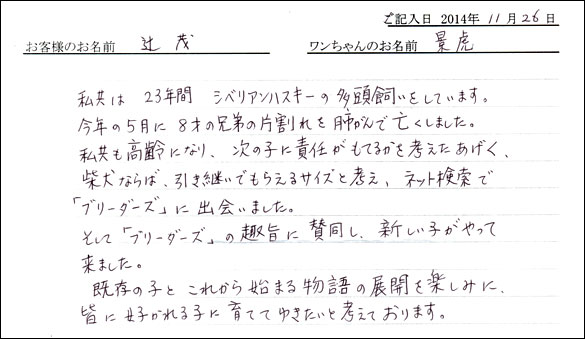 ご記入日 2014年 11月 26日
お客様のお名前 辻 茂 ワンちゃんのお名前 景虎
私共は 23年間 シベリアンハスキーの多頭飼いをしています。
今年の5月に 8才の兄弟の片割れを肺がんで亡くしました。
私共も高齢になり、次の子に責任がもてるかを考えたあげく、
柴犬ならば、引き継いでもらえるサイズと考え、ネット検索で
「ブリーダーズ」に出会いました。
そして「ブリーダーズ」の趣旨に賛同し、新しい子がやって
来ました。
既存の子と これから始まる物語の展開を楽しみに、
皆に好がれる子に育ててゆきたいと考えております。